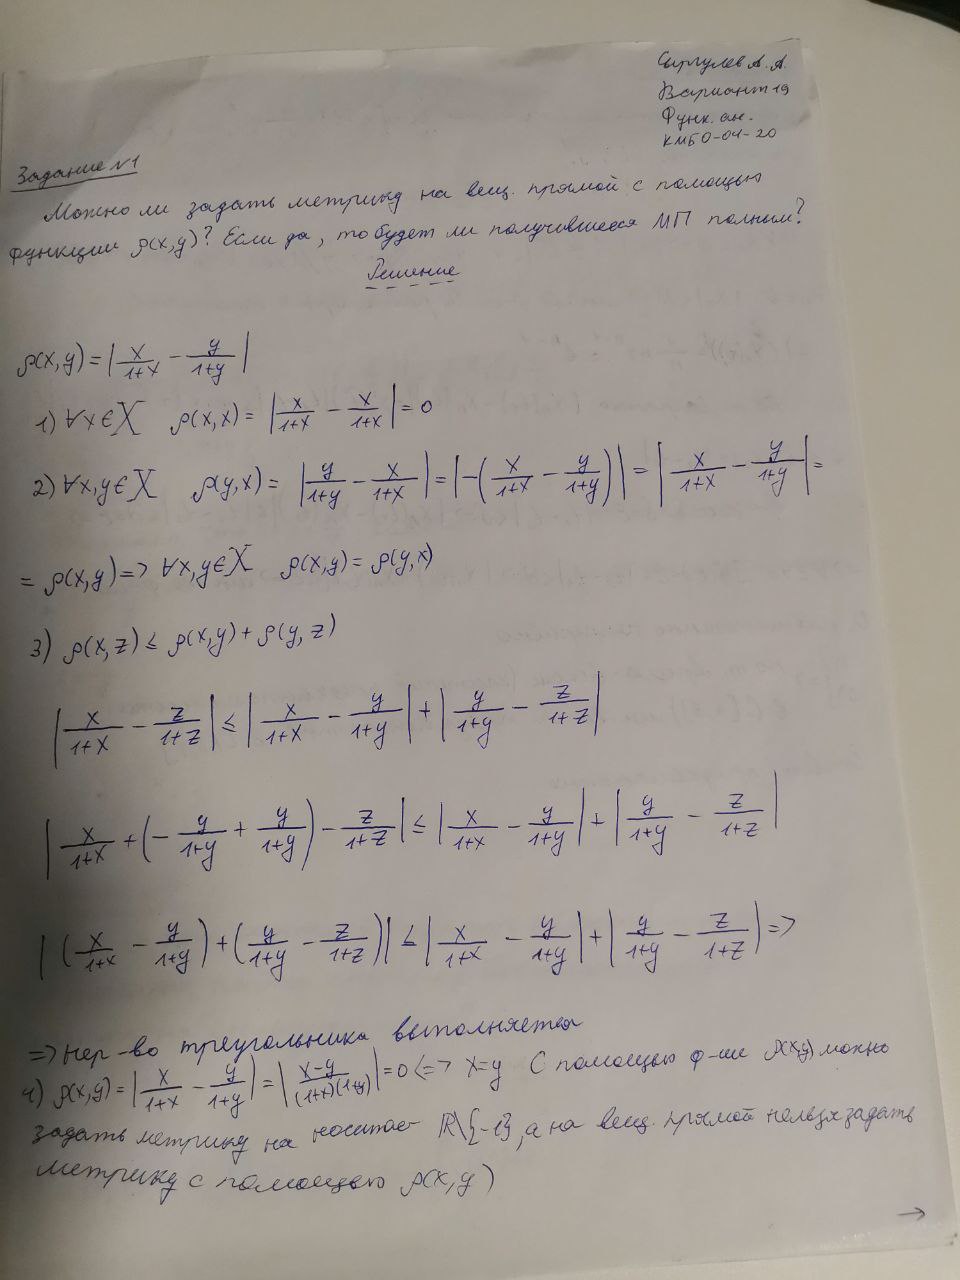 Сыргулев А. А.
Вариант 19
Функ. ан.
КМБО-04-20
Задание №1
Можно ли задать метрику на вещ. прямой с помощью
функции ρ(x,y)? Если да, то будет ли получившееся МП полным?
Решение
ρ(x,y) = |x/(1+x) - y/(1+y)|
1) ∀x∈X ρ(x,x) = |x/(1+x) - x/(1+x)| = 0
2) ∀x,y∈X ρ(y,x) = |y/(1+y) - x/(1+x)| = |-(x/(1+x) - y/(1+y))| = |x/(1+x) - y/(1+y)| =
= ρ(x,y) => ∀x,y∈X ρ(x,y) = ρ(y,x)
3) ρ(x,z) ≤ ρ(x,y) + ρ(y,z)
|x/(1+x) - z/(1+z)| ≤ |x/(1+x) - y/(1+y)| + |y/(1+y) - z/(1+z)|
|x/(1+x) + (-y/(1+y) + y/(1+y)) - z/(1+z)| ≤ |x/(1+x) - y/(1+y)| + |y/(1+y) - z/(1+z)|
|(x/(1+x) - y/(1+y)) + (y/(1+y) - z/(1+z))| ≤ |x/(1+x) - y/(1+y)| + |y/(1+y) - z/(1+z)| =>
=> нер-во треугольника выполняется
4) ρ(x,y) = |x/(1+x) - y/(1+y)| = |(x-y)/((1+x)(1+y))| = 0 <=> x=y С помощью ф-ии ρ(x,y) можно
задать метрику на носителе R\{-1}, а на вещ. прямой нельзя задать
метрику с помощью ρ(x,y)
→